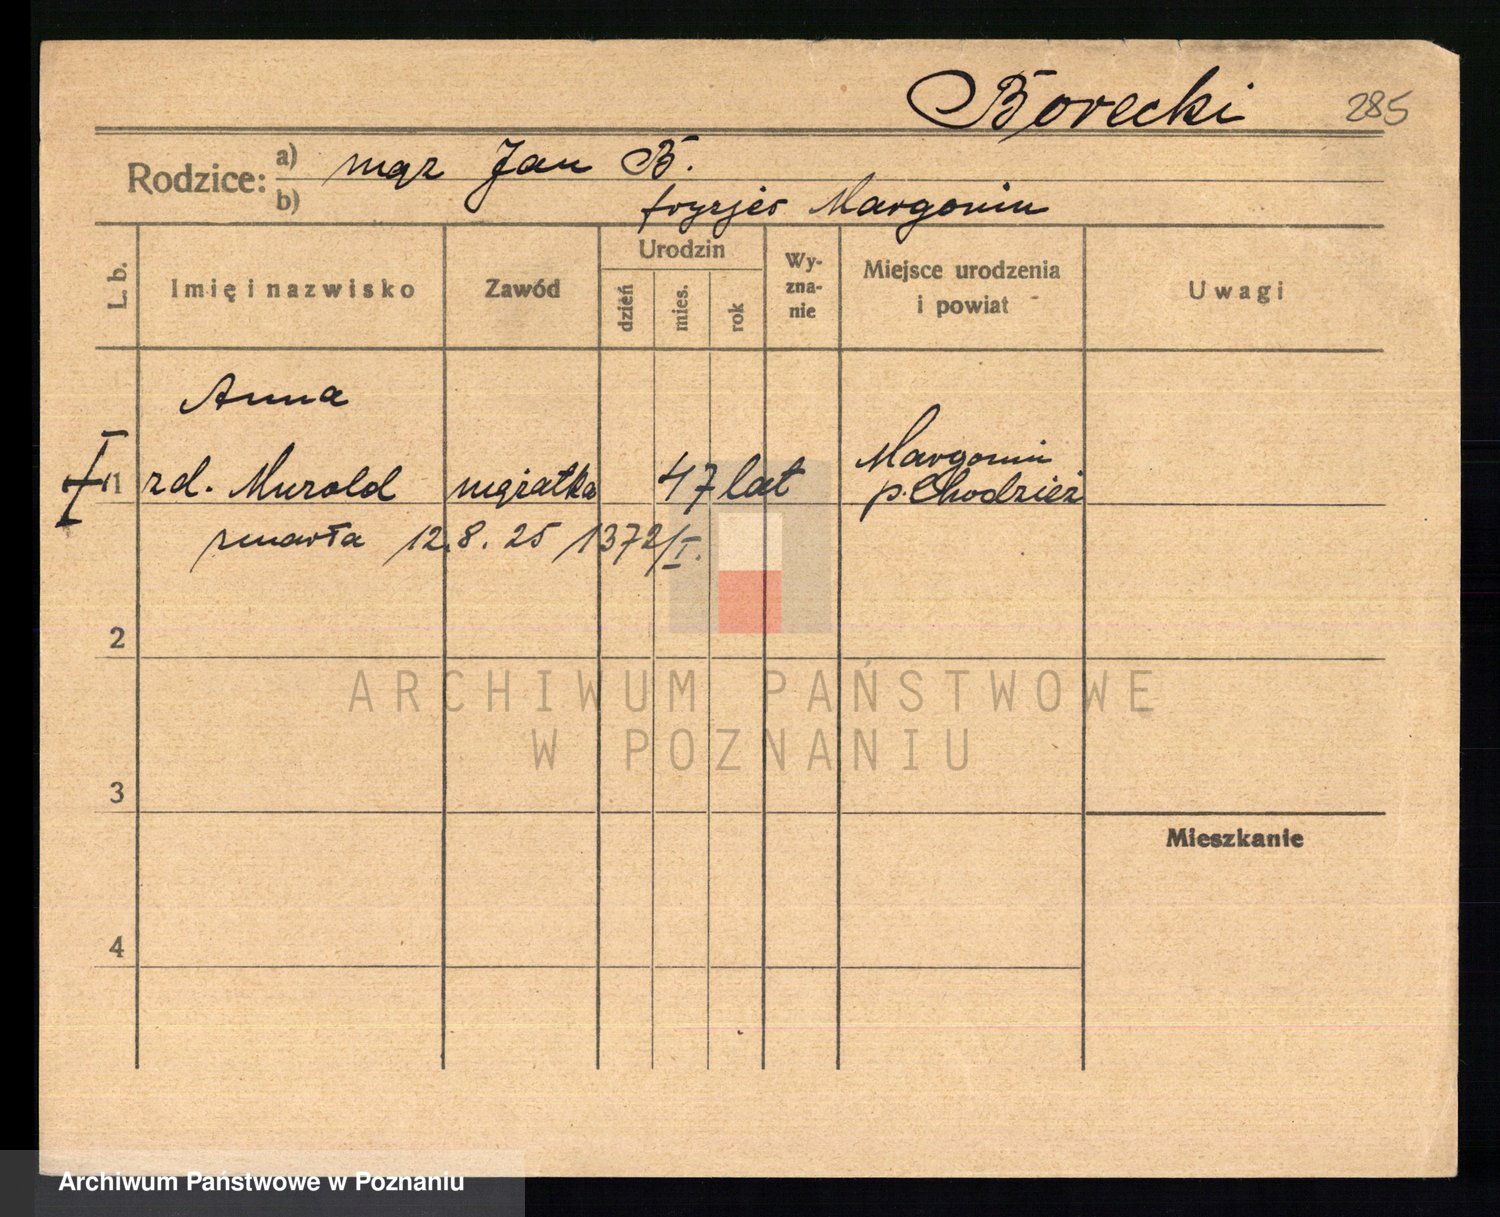 Borecki 285
Rodzice: a) mąż Jan B.
b) fryzjer Margonin
L. b.
Imię i nazwisko
Zawód
Urodzin
dzień
mies.
rok
Wy-
zna-
nie
Miejsce urodzenia
i powiat
Uwagi
Anna
1 zd. Murold mężatka 47 lat Margonin
p. Chodzież
zmarła 12.8.25 1372/I.
2
3
Mieszkanie
4
ARCHIWUM PAŃSTWOWE
W POZNANIU
Archiwum Państwowe w Poznaniu